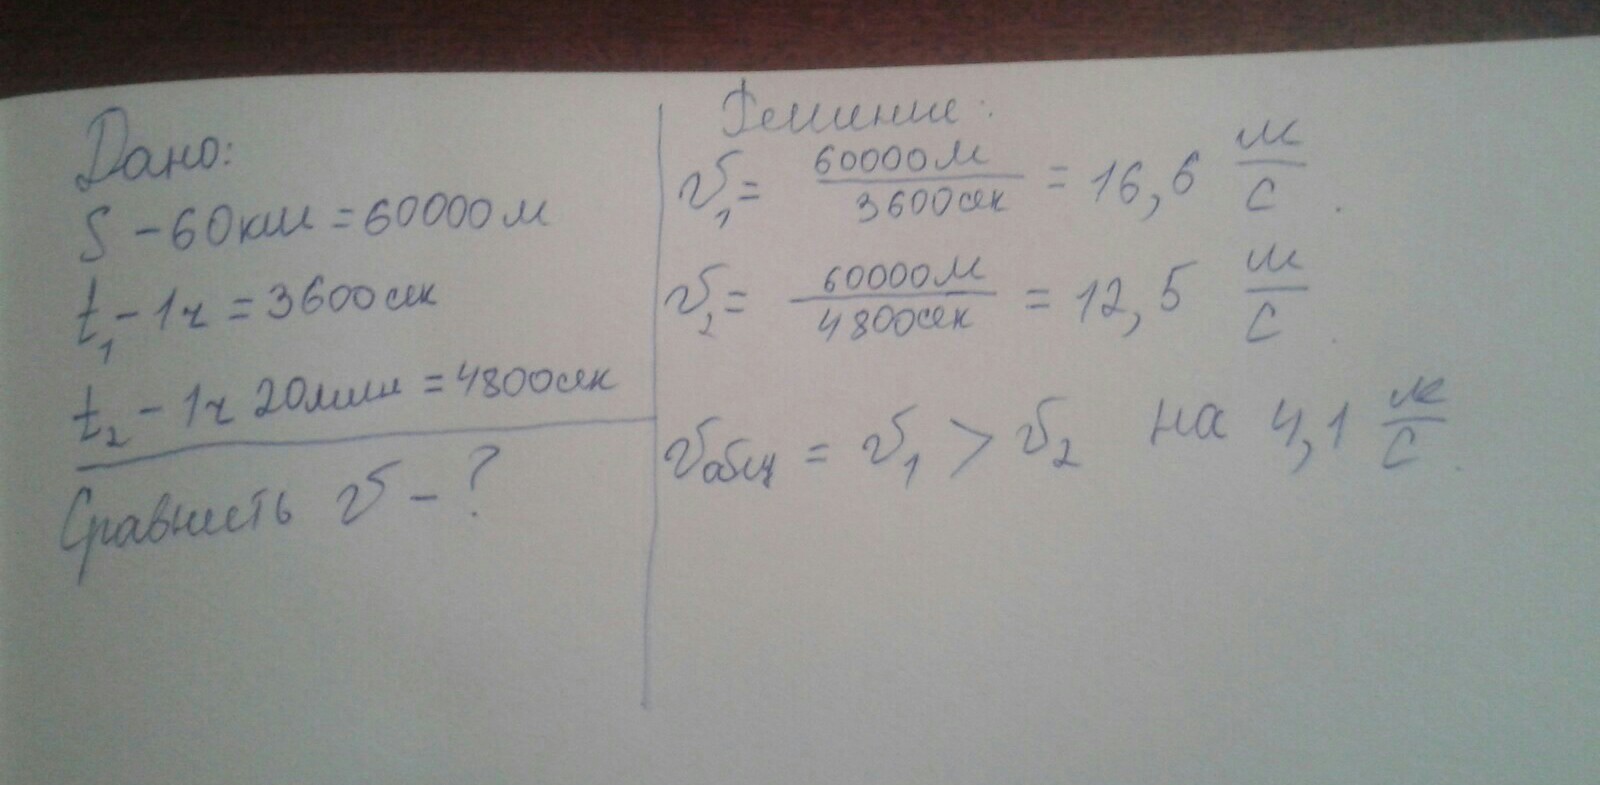 Дано:
S - 60км = 60000м
t₁ - 1ч = 3600сек
t₂ - 1ч 20мин = 4800сек
Сравнить v - ?
Решение:
v₁ = 60000м / 3600сек = 16,6 м/с.
v₂ = 60000м / 4800сек = 12,5 м/с.
vобщ = v₁ > v₂ на 4,1 м/с.